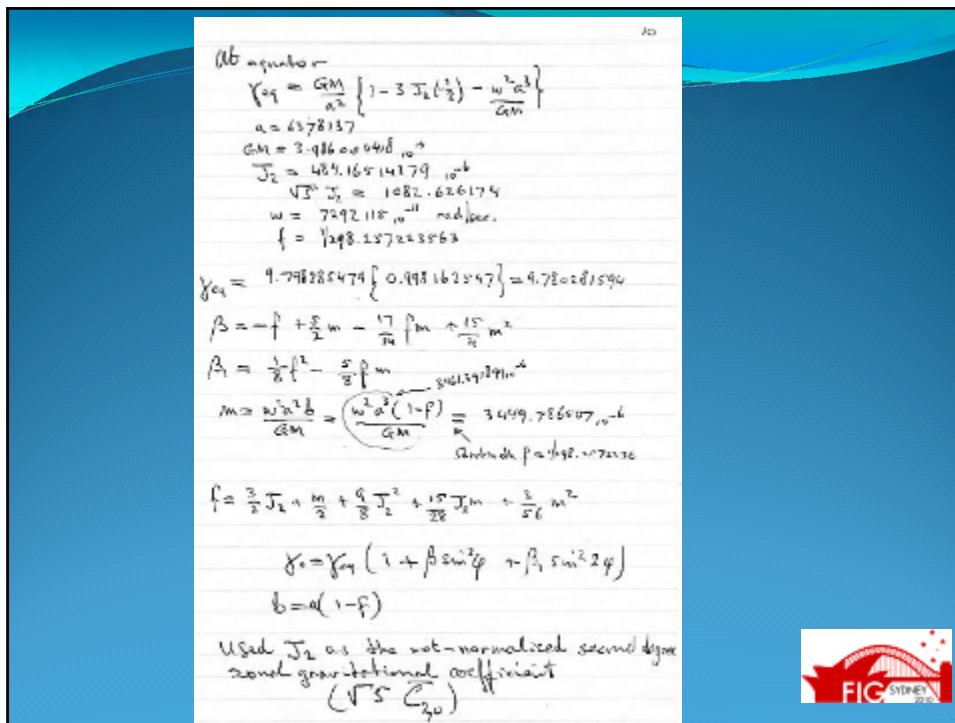 10
At equator
γeq = GM/a² { 1 - 3 J₂(½) - w²a³/GM }
a = 6378137
GM = 3.986004418 ₁₀
J₂ = 484.16514279 ₁₀-6
J₂ = 1082.626174
w = 7292115 ₁₀-11 rad/sec.
f = 1/298.257223563
γeq = 9.798285479 { 0.998162547 } = 9.780281594
β = -f + 5/2 m - 17/14 fm + 15/4 m²
β₁ = 1/8 f² - 5/8 fm
m = w²a²b/GM = w²a³(1-f)/GM = 3449.786507 ₁₀-6
f = 3/2 J₂ + m/2 + 9/8 J₂² + 15/28 J₂m + 3/56 m²
γ₀ = γeq ( 1 + β sin²φ + β₁ sin² 2φ )
b = a( 1 - f )
Used J₂ as the not-normalized second degree
zonal gravitational coefficient
( √5 C̅₂,₀ )
FIG SYDNEY
2010